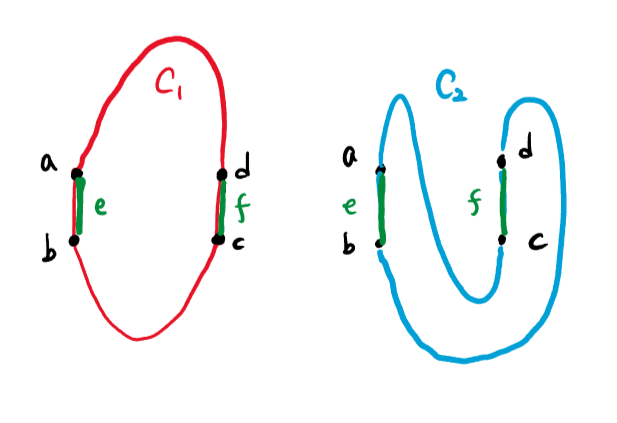 C₁
a
d
e
f
b
c
C₂
a
d
e
f
b
c